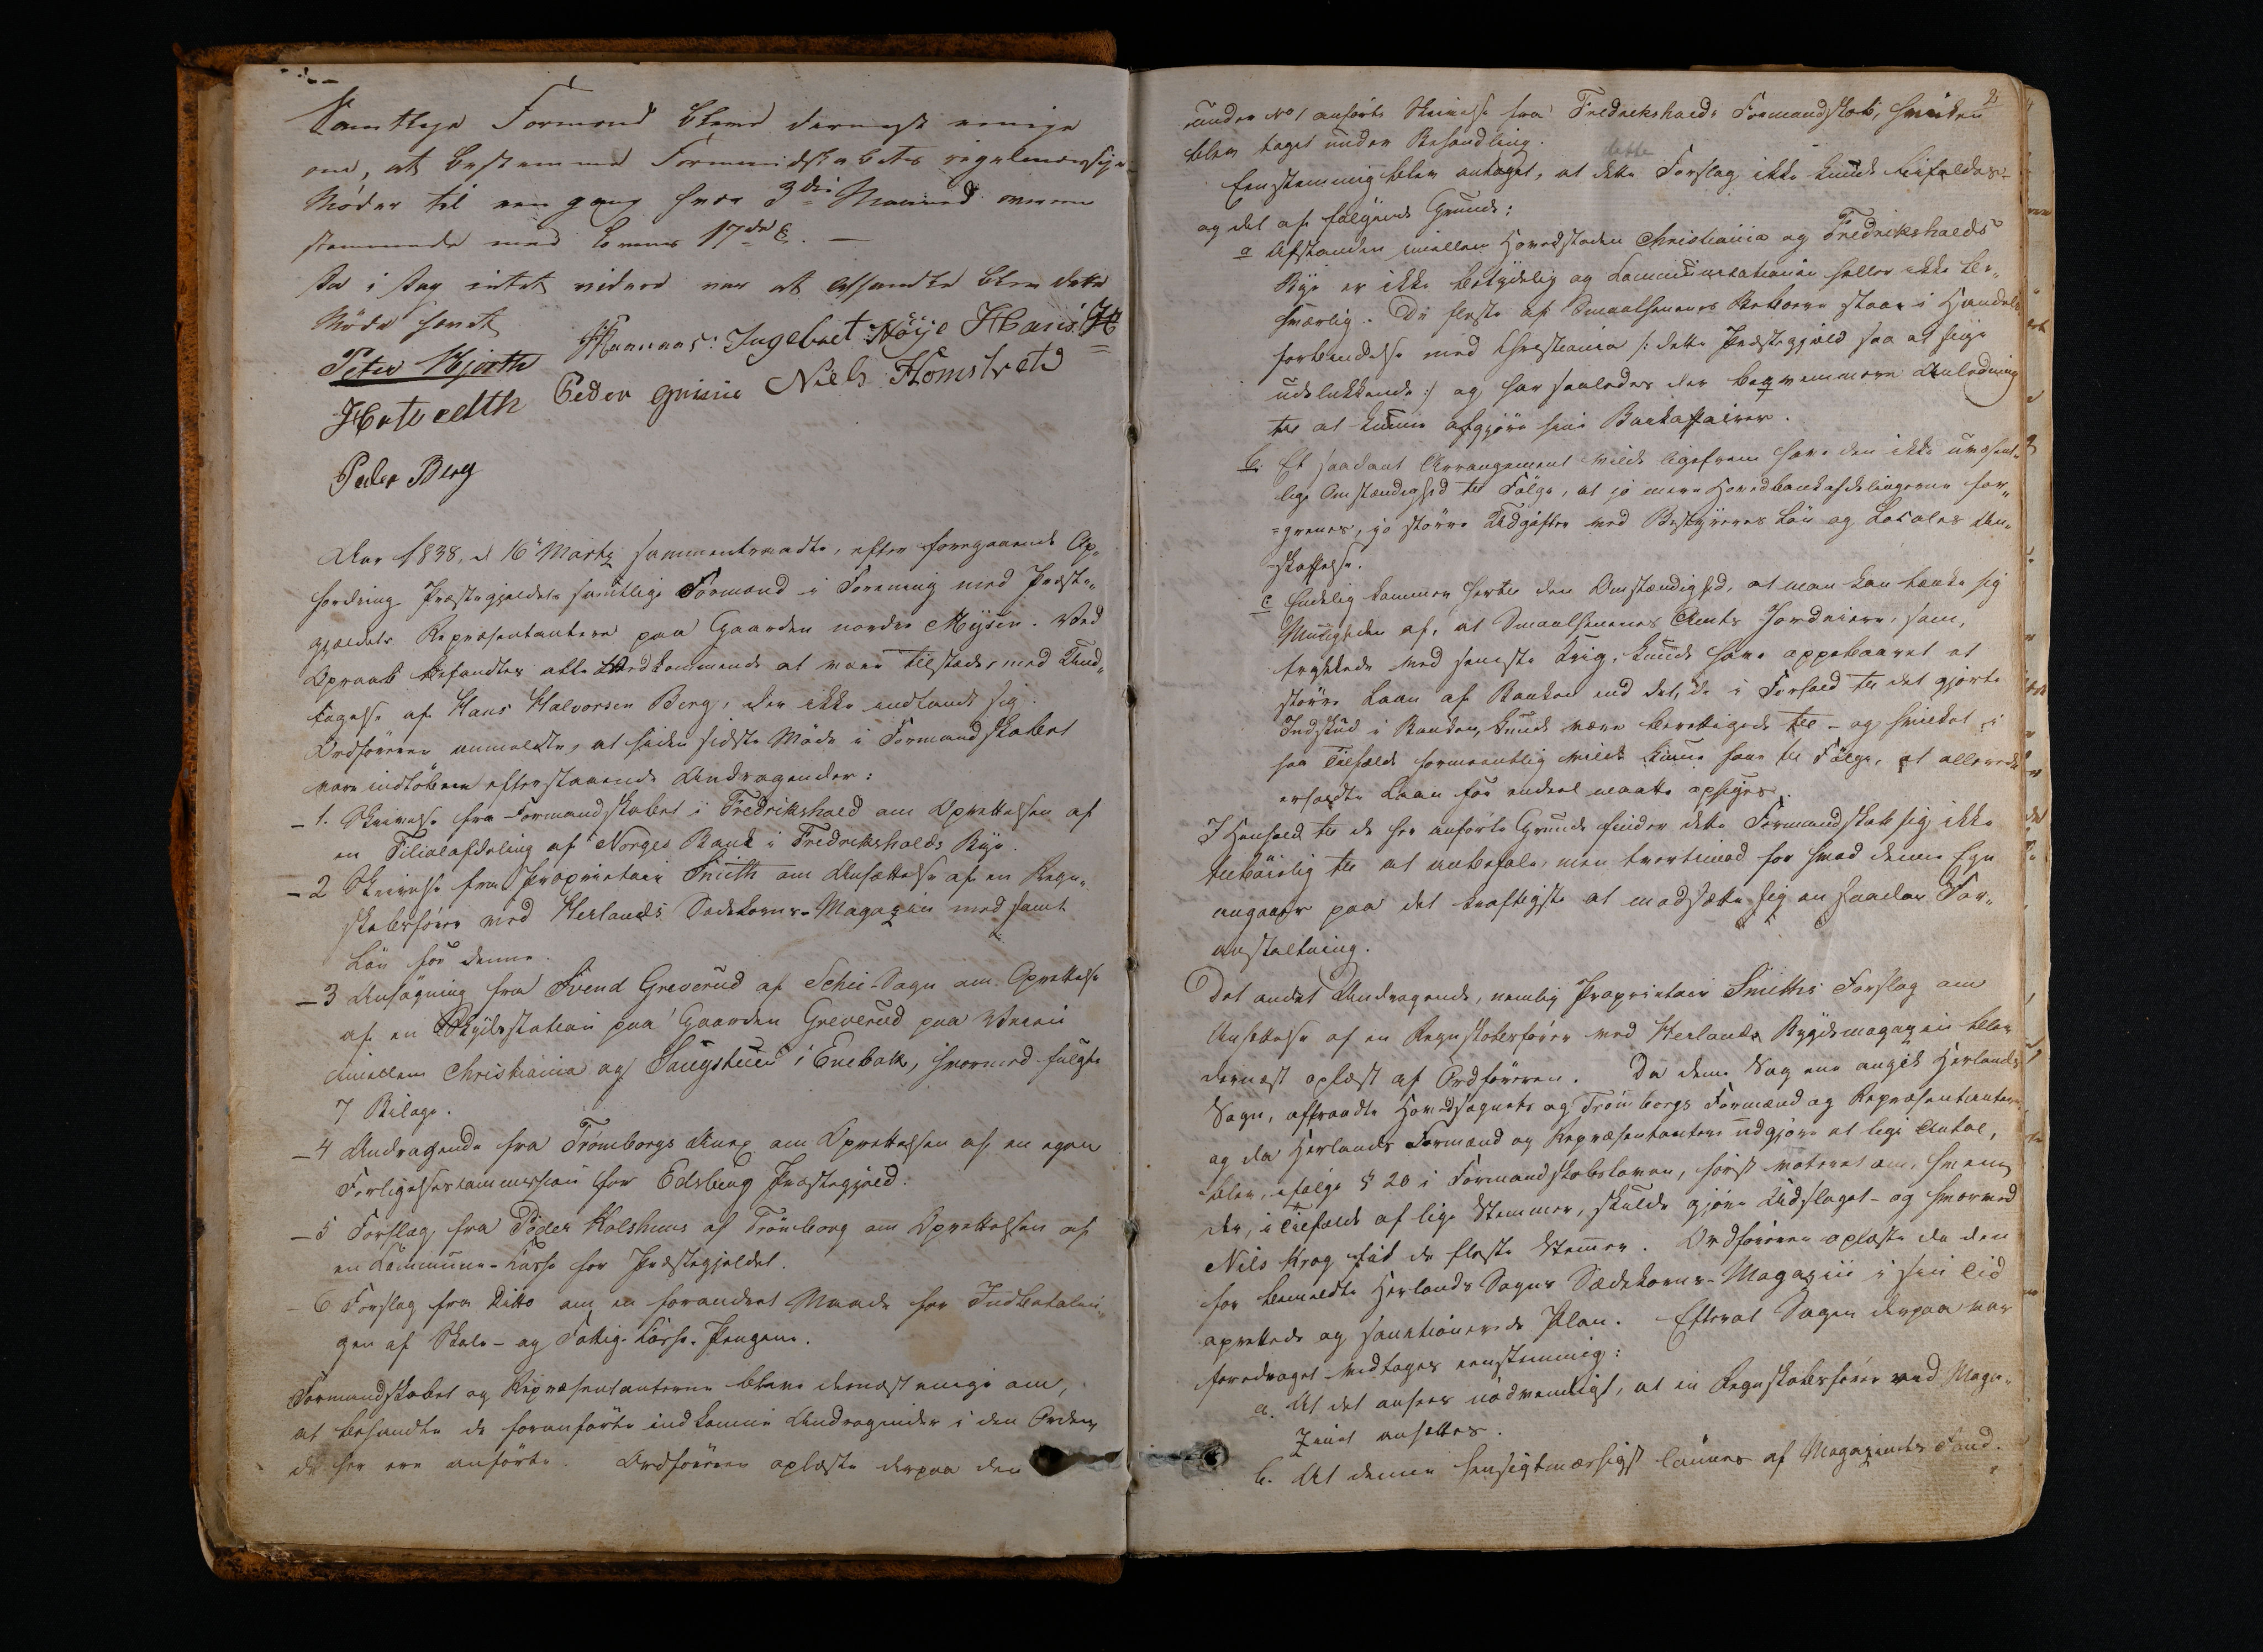 Samtlige Formænd bleve dernæst enige
om, at bestemme Formandskabets regelmæssige
Møder til een gang hver 3die Maaned overeens
stemmende med Lovens 17de §. —
Da i dag intet videre var at afhandle blev dette
Møde hævet
Peter Hjorth Hannaas: Ingebret Høije Hans: H
Peder Niels Homstvedt
Peder Berg
Aar 1838, d 16de Martz sammentraadte, efter foregaaende Op„
fordring Præstegjeldets samtlige Formænd i Forening med Præste„
gjældets Repræsentantere paa Gaarden nordre Mysen. Ved
Opraab befandtes alle Vedkommende at være tilstæde, med Und„
tagelse af Hans Halvorsen Berg, der ikke indfandt sig.
Ordføreren anmeldte, at siden sidste Møde i Formandskabet
vare indløbne efterstaaende Andragender:
– 1. Skrivelse fra Formandskabet i Fredrikshald om Oprettelsen af
en Filialafdeling af Norges Bank i Fredrikshalds Bye.
– 2 Skrivelse fra Proprietair Smith om Ansættelse af en Regn„
skabsfører ved Herlands Sædekorns-Magazin med samt
Løn for denne.
– 3 Ansøgning fra Svend Greverud af Schie-Sogn om Oprettelse
af en Skydsstation paa Gaarden Greverud paa Veien
imellem Christiania og Sangstuen i Enebak, hvormed fulgte
7 Bilage.
– 4 Andragende fra Trømborgs Anex om Oprettelsen af en egen
Forligelsescommission for Edsberg Præstegjeld.
– 5 Forslag fra Peder Kolshuus af Trømborg om Oprettelsen af
en Commune-Casse for Præstegjeldet.
– 6 Forslag fra Ditto om en forandret Maade for Indbetalin„
gen af Skole- og Fattig-Casse-Pengene.
Formandskabet og Repræsentanterne bleve dernæst enige om,
at behandle de foranførte indkomne Andragender i den Orden,
de her ere anførte. Ordføreren oplæste derpaa den
2
under No 1 anførte Skrivelse fra Fredrikshalds Formandskab, hvilken
blev taget under Behandling.
dette
Eenstemmig blev antaget, at dette Forslag ikke kunde bifaldes –
og det af følgende Grunde:
a Afstanden imellem Hovedstaden Christiania og Fredrikshalds
Bye er ikke betydelig og Communicationen heller ikke be„
sværlig. De fleste af Smaalehnenes Beboere staar i Handels
forbindelse med Christiania /: dette Præstegjeld saa at sige
udelukkende :/ og har saaledes der beqvemmere Anledning
til at kunne afgjøre sine Bankaffairer.
b. Et saadant Arrangement vilde ligefrem have den ikke uvæsent„
lige Omstændighed til Følge, at jo mere Hovedbankafdelingerne for„
=grenes, jo større Udgifter ved Bestyreres Løn og Locales An„
skaffelse.
c Endelig kommer hertil den Omstændighed, at man kan tænke sig
Muligheden af, at Smaalehnenes Amts Jordeiere, som,
trykkede ved seneste Krig, kunde have oppebaaret et
større Laan af Banken end det, de i Forhold til det gjorte
Indskud i Banken kunde være berettigede til – og hvilket i
saa Tilfælde formeentlig vilde kunne have til Følge, at allerede
erholdte Laan for endeel maatte opsiges.
I Henhold til de her anførte Grunde finder dette Formandskab sig ikke
tilbøielig til at anbefale, men tvertimod for hvad denne Egn
angaaer paa det kraftigste at modsætte sig en saadan For„
anstaltning.
Det andet Andragende, nemlig Proprietair Smiths Forslag om
Ansættelse af en Regnskabsfører ved Herlands Bygdemagazin blev
dernæst oplæst af Ordføreren. Da denne Sag ene angik Herlands
Sogn, aftraadte Hovedsognets og Trømborgs Formænd og Repræsentanter,
og da Herlands Formænd og Repræsentantere udgjøre et lige Antal,
blev, ifølge § 20 i Formandskabsloven, først voteret om, hvem
der, i Tilfælde af lige Stemmer, skulde gjøre Udslaget – og hvorved
Nils Krog fik de fleste Stemmer. Ordføreren oplæste da den
for bemeldte Herlands Sogns Sædekorns-Magazin i sin Tid
oprettede og sanctionerede Plan. Efterat Sagen derpaa var
foredraget vedtoges eenstemmig:
a. At det ansees nødvendigt, at en Regnskabsfører ved Maga„
zinet ansættes.
b. At denne hensigtmæssigst lønnes af Magazinets Fond.